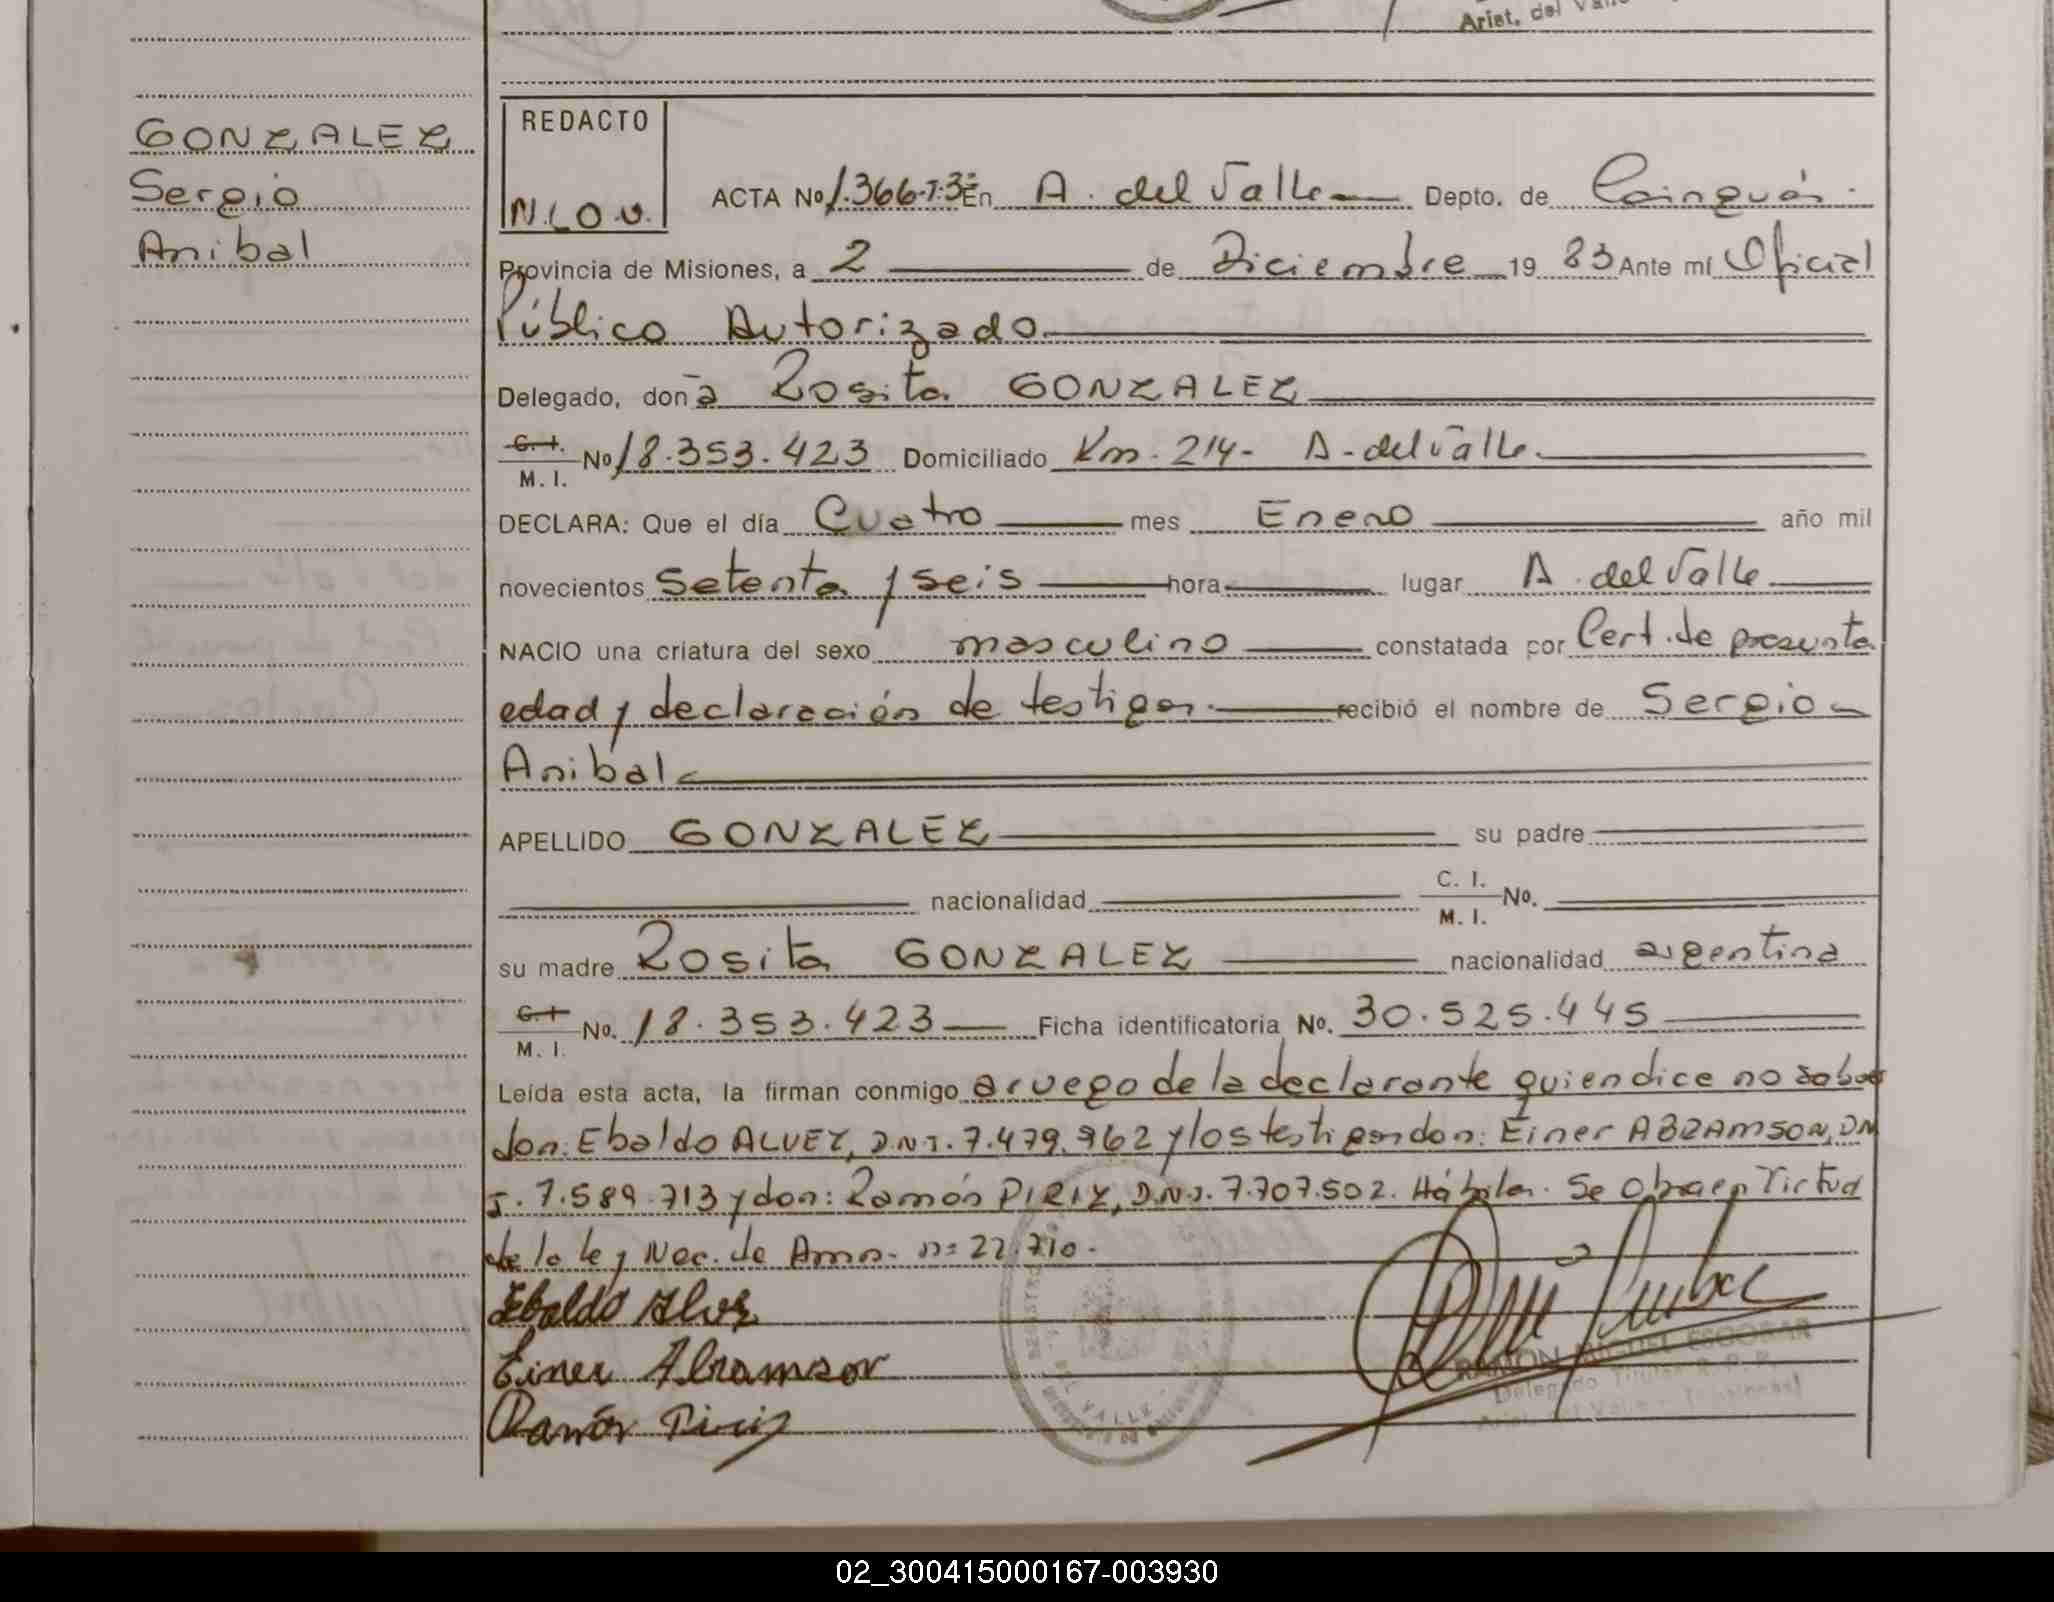 Arist. del Valle
GONZALEZ
Sergio
Anibal
REDACTO
N.L.O.V.
ACTA No 1.366-T.3º En A. del Valle Depto. de Cainguás
Provincia de Misiones, a 2 de Diciembre 19 83 Ante mí Oficial
Público Autorizado
Delegado, doña Rosita GONZALEZ
C. I.
M. I. No 18.353.423 Domiciliado Km. 214- A. del Valle
DECLARA: Que el día Cuatro mes Enero año mil
novecientos Setenta y seis hora lugar A. del Valle
NACIO una criatura del sexo masculino constatada por Cert. de presunta
edad y declaración de testigos. recibió el nombre de Sergio
Anibal
APELLIDO GONZALEZ su padre
nacionalidad C. I.
M. I. No.
su madre Rosita GONZALEZ nacionalidad argentina
C. I.
M. I. No. 18.353.423 Ficha identificatoria No. 30.525.445
Leída esta acta, la firman conmigo a ruego de la declarante quien dice no saber
don: Ebaldo ALVEZ, D.N.I. 7.479.962 y los testigos don: Einer ABRAMSON, DN
I. 7.589.713 y don: Ramón PIRIZ, D.N.I. 7.707.502. Hábiles. Se obra en Virtud
de la ley Nac. de Amn. nº 22.710.
Ebaldo Alvez
Einer Abramson
Ramón Piriz
RAMON MIGUEL ESCOBAR
Delegado Titular R. P. P.
Arist. del Valle - (Misiones)
02_300415000167-003930